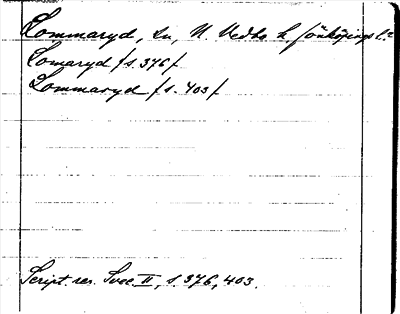 Lommaryd, sn, N. Vedbo h. Jönköpings l.
Lomaryd /s. 376/
Lommaryd /s. 403/
Script. rer. Svec II, s. 376, 403.